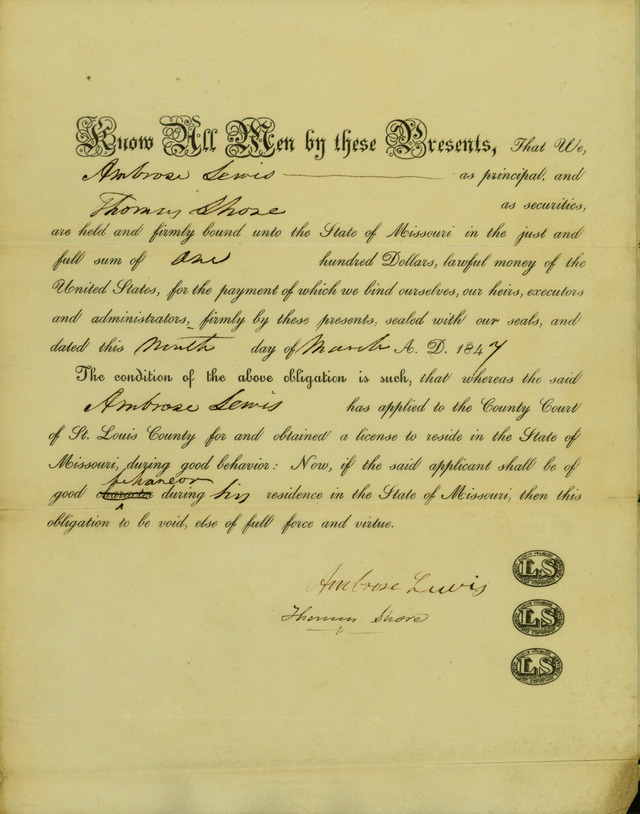 Know All Men by these Presents, That We,
Ambrose Lewis as principal, and
Thomas Shore as securities,
are held and firmly bound unto the State of Missouri in the just and
full sum of One hundred Dollars, lawful money of the
United States, for the payment of which we bind ourselves, our heirs, executors
and administrators, firmly by these presents, sealed with our seals, and
dated this Ninth day of March A. D. 1847
The condition of the above obligation is such, that whereas the said
Ambrose Lewis has applied to the County Court
of St. Louis County for and obtained a license to reside in the State of
Missouri, during good behavior: Now, if the said applicant shall be of
behaneor
good character during his residence in the State of Missouri, then this
obligation to be void, else of full force and virtue.
Ambrose Lewis
Thomas Shore
LS
LS
LS